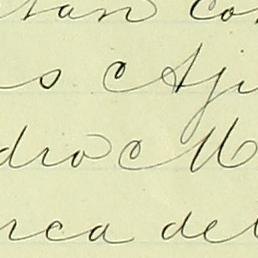 tan co
s Aji
dro M
rca del